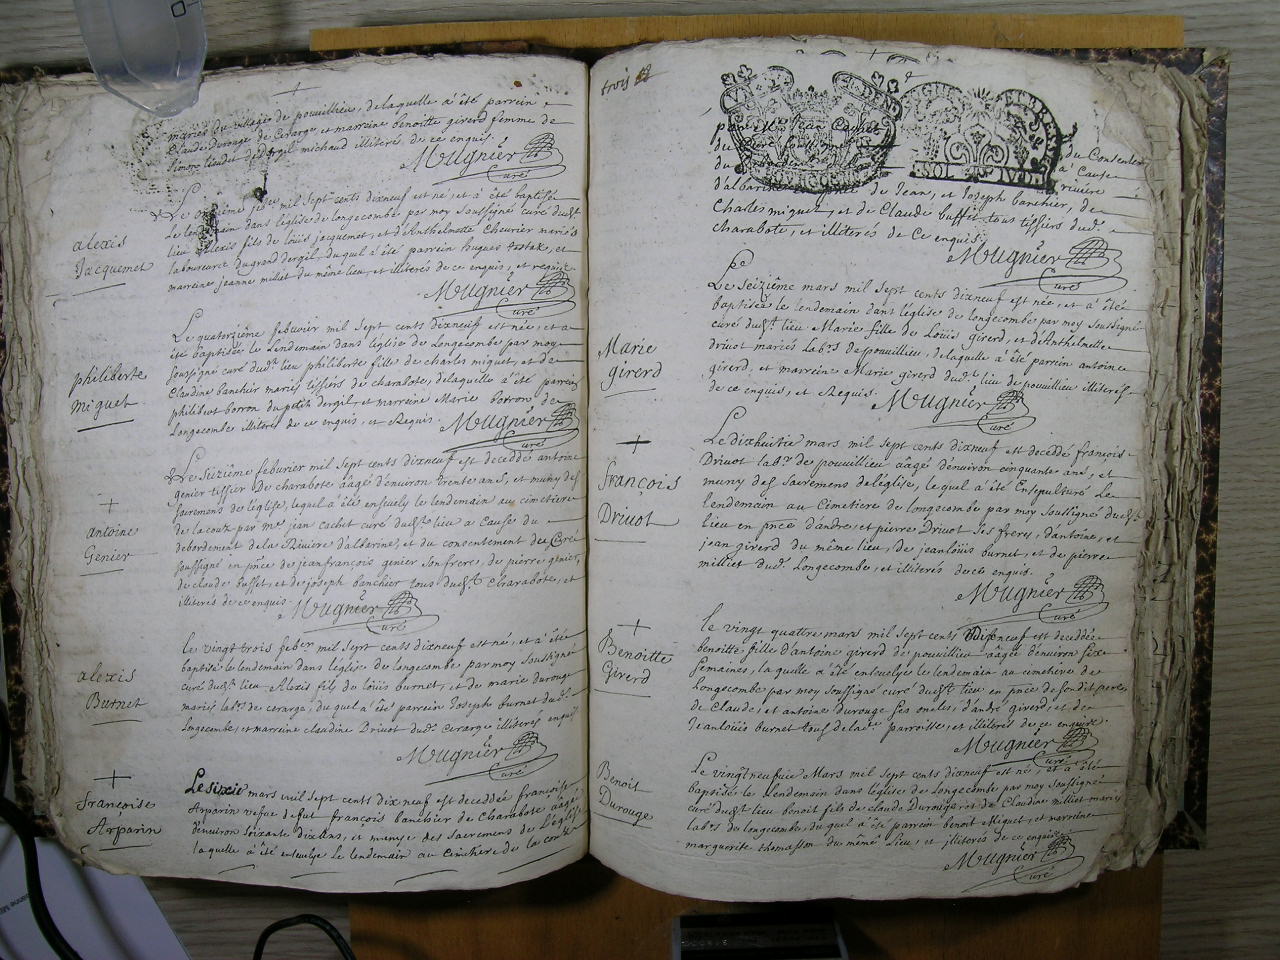 mariés du village de pouvillieu, de laquelle a été parrein
Claude durouge de Cerarge, et marreine benoitte girerd femme de
michaud illiteres de ce enquis
Mugnier
Curé
alexis
Jacquemet
Le onzième mil sept cents dixneuf est né, et a été baptisé
Le lendemain dans leglise de longecombe par moy soussigné curé dud.t
lieu Alexis fils de loüis jacquemet, et d'Anthelmette Cheurier mariés
laboureurs du grand dergil duquel a été parrein hugues et
marreine jeanne millet du même lieu, et illiterés de ce enquis, et requis
Mugnier
Curé
philiberte
miguet
Le quatorzième feburier mil sept cents dixneuf est née, et a
été baptisée le Lendemain dans leglise de Longecombe par moy
soussigné curé dud.t lieu philiberte fille de charles miguet, et de
Claudine banchier mariés tissiers de charabote, de laquelle a été parrein
philibert borron du petit dergil, et marreine Marie borron de
Longecombe illiterés de ce enquis, et Requis
Mugnier
Curé
+
antoine
Genier
Le Seizième feburier mil sept cents dixneuf est deceddé antoine
genier tissier De charabote aâgé denuiron trente ans, et muny des
sacremens de leglise, lequel a été enseuely le lendemain au cimetiere
de la coux par m.re jean cachet curé dud.t lieu a Cause du
debordement de la Riviere d'alberine, et du consentement du Curé
soussigné en pnce de jeanfrançois genier son frere, de pierre genier,
de claude buffet, et de joseph banchier tous dud.t Charabote, et
illiterés de ce enquis
Mugnier
Curé
alexis
Burnet
Le vingt trois feb.er mil sept cents dixneuf est né, et a été
baptisé le lendemain dans leglise de longecombe par moy soussigné
curé dud.t lieu Alexis fils de loüis burnet, et de marie durouge
mariés lab.rs de cerarge, du quel a été parrein Joseph burnet du d.
Longecombe, et marreine claudine Driuot dud. Cerarge illiterés enquis
Mugnier
Curé
+
françoise
Arparin
Le sixie mars mil sept cents dixneuf est deceddée françoise
Arparin vefue de fut françois banchier de Charabote aâgée
denuiron soixante dix ans, et munye des Sacremens de l'église
laquelle a été enseuelye le lendemain au Cimetiere de la coux
trois
par M.re Jean Cachet
du Consentement
a Cause
riviere
d'albarine de Jean, et Joseph banchier, de
Charles miguet, et de Claude buffet tous tissiers dud.
charabote, et illiterés de Ce enquis
Mugnier
Curé
Marie
girerd
Le Seizième mars mil Sept cents dixneuf est née, et a été
baptisée le lendemain dans leglise de longecombe par moy soussigné
curé dud.t lieu Marie fille de Loüis girerd, et d'Anthelmette
driuot mariés lab.rs de pouvillieu, de laquelle a été parrein antoine
girerd, et marreine Marie girerd dud. lieu de pouvillieu illiterés
de ce enquis, et Requis
Mugnier
Curé
+
François
Driuot
Le dixhuitie mars mil sept cents dixneuf est décédé françois
Driuot lab.r de pouvillieu aâgé denuiron cinquante ans, et
muny des Sacremens de leglise, le quel a été Ensepulturé le
lendemain au Cimetiere de longecombe par moy soussigné dud.t
lieu en pnce d'andre et pierre Driuot ses freres, d'antoine, et
jean girerd du même lieu, de jean loüis burnet, et de pierre
milliet dud. Longecombe, et illiterés de ce enquis.
Mugnier
Curé
+
Benoitte
Girerd
le vingt quatre mars mil sept cents dixneuf est deceddée
benoitte fille d'antoine girerd de pouvillieu aâgée denuiron six
semaines, laquelle a été enseuelye le lendemain au cimetiere de
Longecombe par moy soussigné curé dud.t lieu en pnce de sondit pere,
de Claude, et antoine durouge ses oncles, d'andré girerd, et de
Jeanloüis burnet tous de la d. parroisse, et illiterés de ce enquis
Mugnier
Curé
Benoit
Durouge
Le vingtneufuie Mars mil sept cents dixneuf est né, et a été
baptisé le lendemain dans leglise de Longecombe par moy soussigné
curé dud.t lieu benoit fils de claude durouge et de Claudine milliet mariés
lab.rs du longecombe, du quel a été parrein benoit Miguet, et marreine
marguerite thomasson du même Lieu, et illiterés de ce enquis
Mugnier
Curé